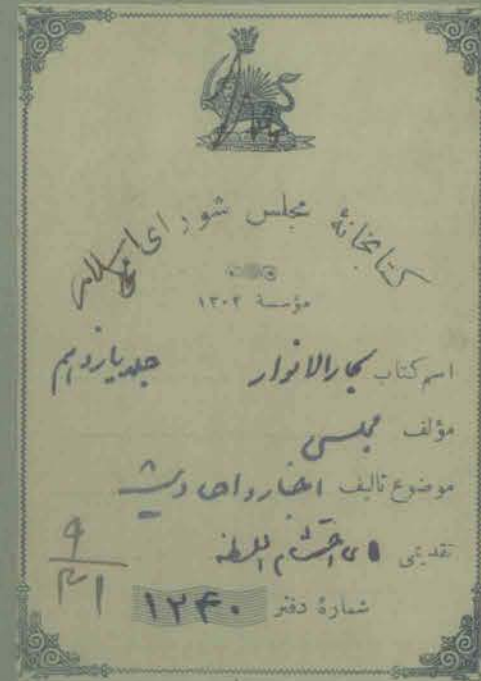 کتابخانهٔ مجلس شورای اسلامی
مؤسسهٔ ۱۳۰۲
اسم کتاب بحارالانوار جلد یازدهم
مؤلف مجلسی
موضوع تالیف اخبار و احادیث
تقدیمی احتشام السلطنه
شمارهٔ دفتر ۱۲۴۰
۹
۳۱